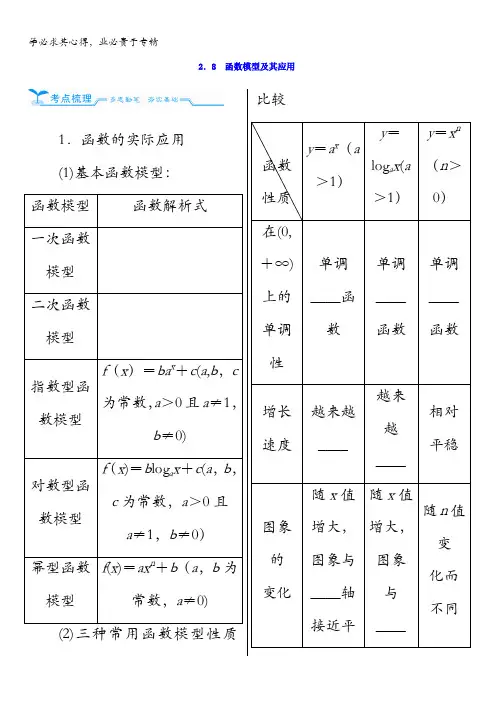 学必求其心得，业必贵于专精
2．8 函数模型及其应用
考点梳理 多思勤笔 夯实基础
1．函数的实际应用
(1)基本函数模型：
函数模型 函数解析式
一次函数
模型
二次函数
模型
指数型函
数模型
f（x）＝baˣ＋c(a,b，c
为常数，a＞0且a≠1，
b≠0)
对数型函
数模型
f(x)＝blogₐx＋c(a，b，
c为常数，a＞0且
a≠1，b≠0）
幂型函数
模型
f(x)＝axⁿ＋b（a，b为
常数，a≠0)
(2)三种常用函数模型性质
比较
函数
性质
y＝aˣ（a
＞1）
y＝
logₐx(a
＞1）
y＝xⁿ
（n＞
0）
在(0,
＋∞)
上的
单调
性
单调
____函
数
单调
____
函数
单调
____
函数
增长
速度
越来越
____
越来
越
____
相对
平稳
图象
的
变化
随x值
增大，
图象与
____轴
接近平
随x值
增大，
图象
与
____
随n值
变
化而
不同